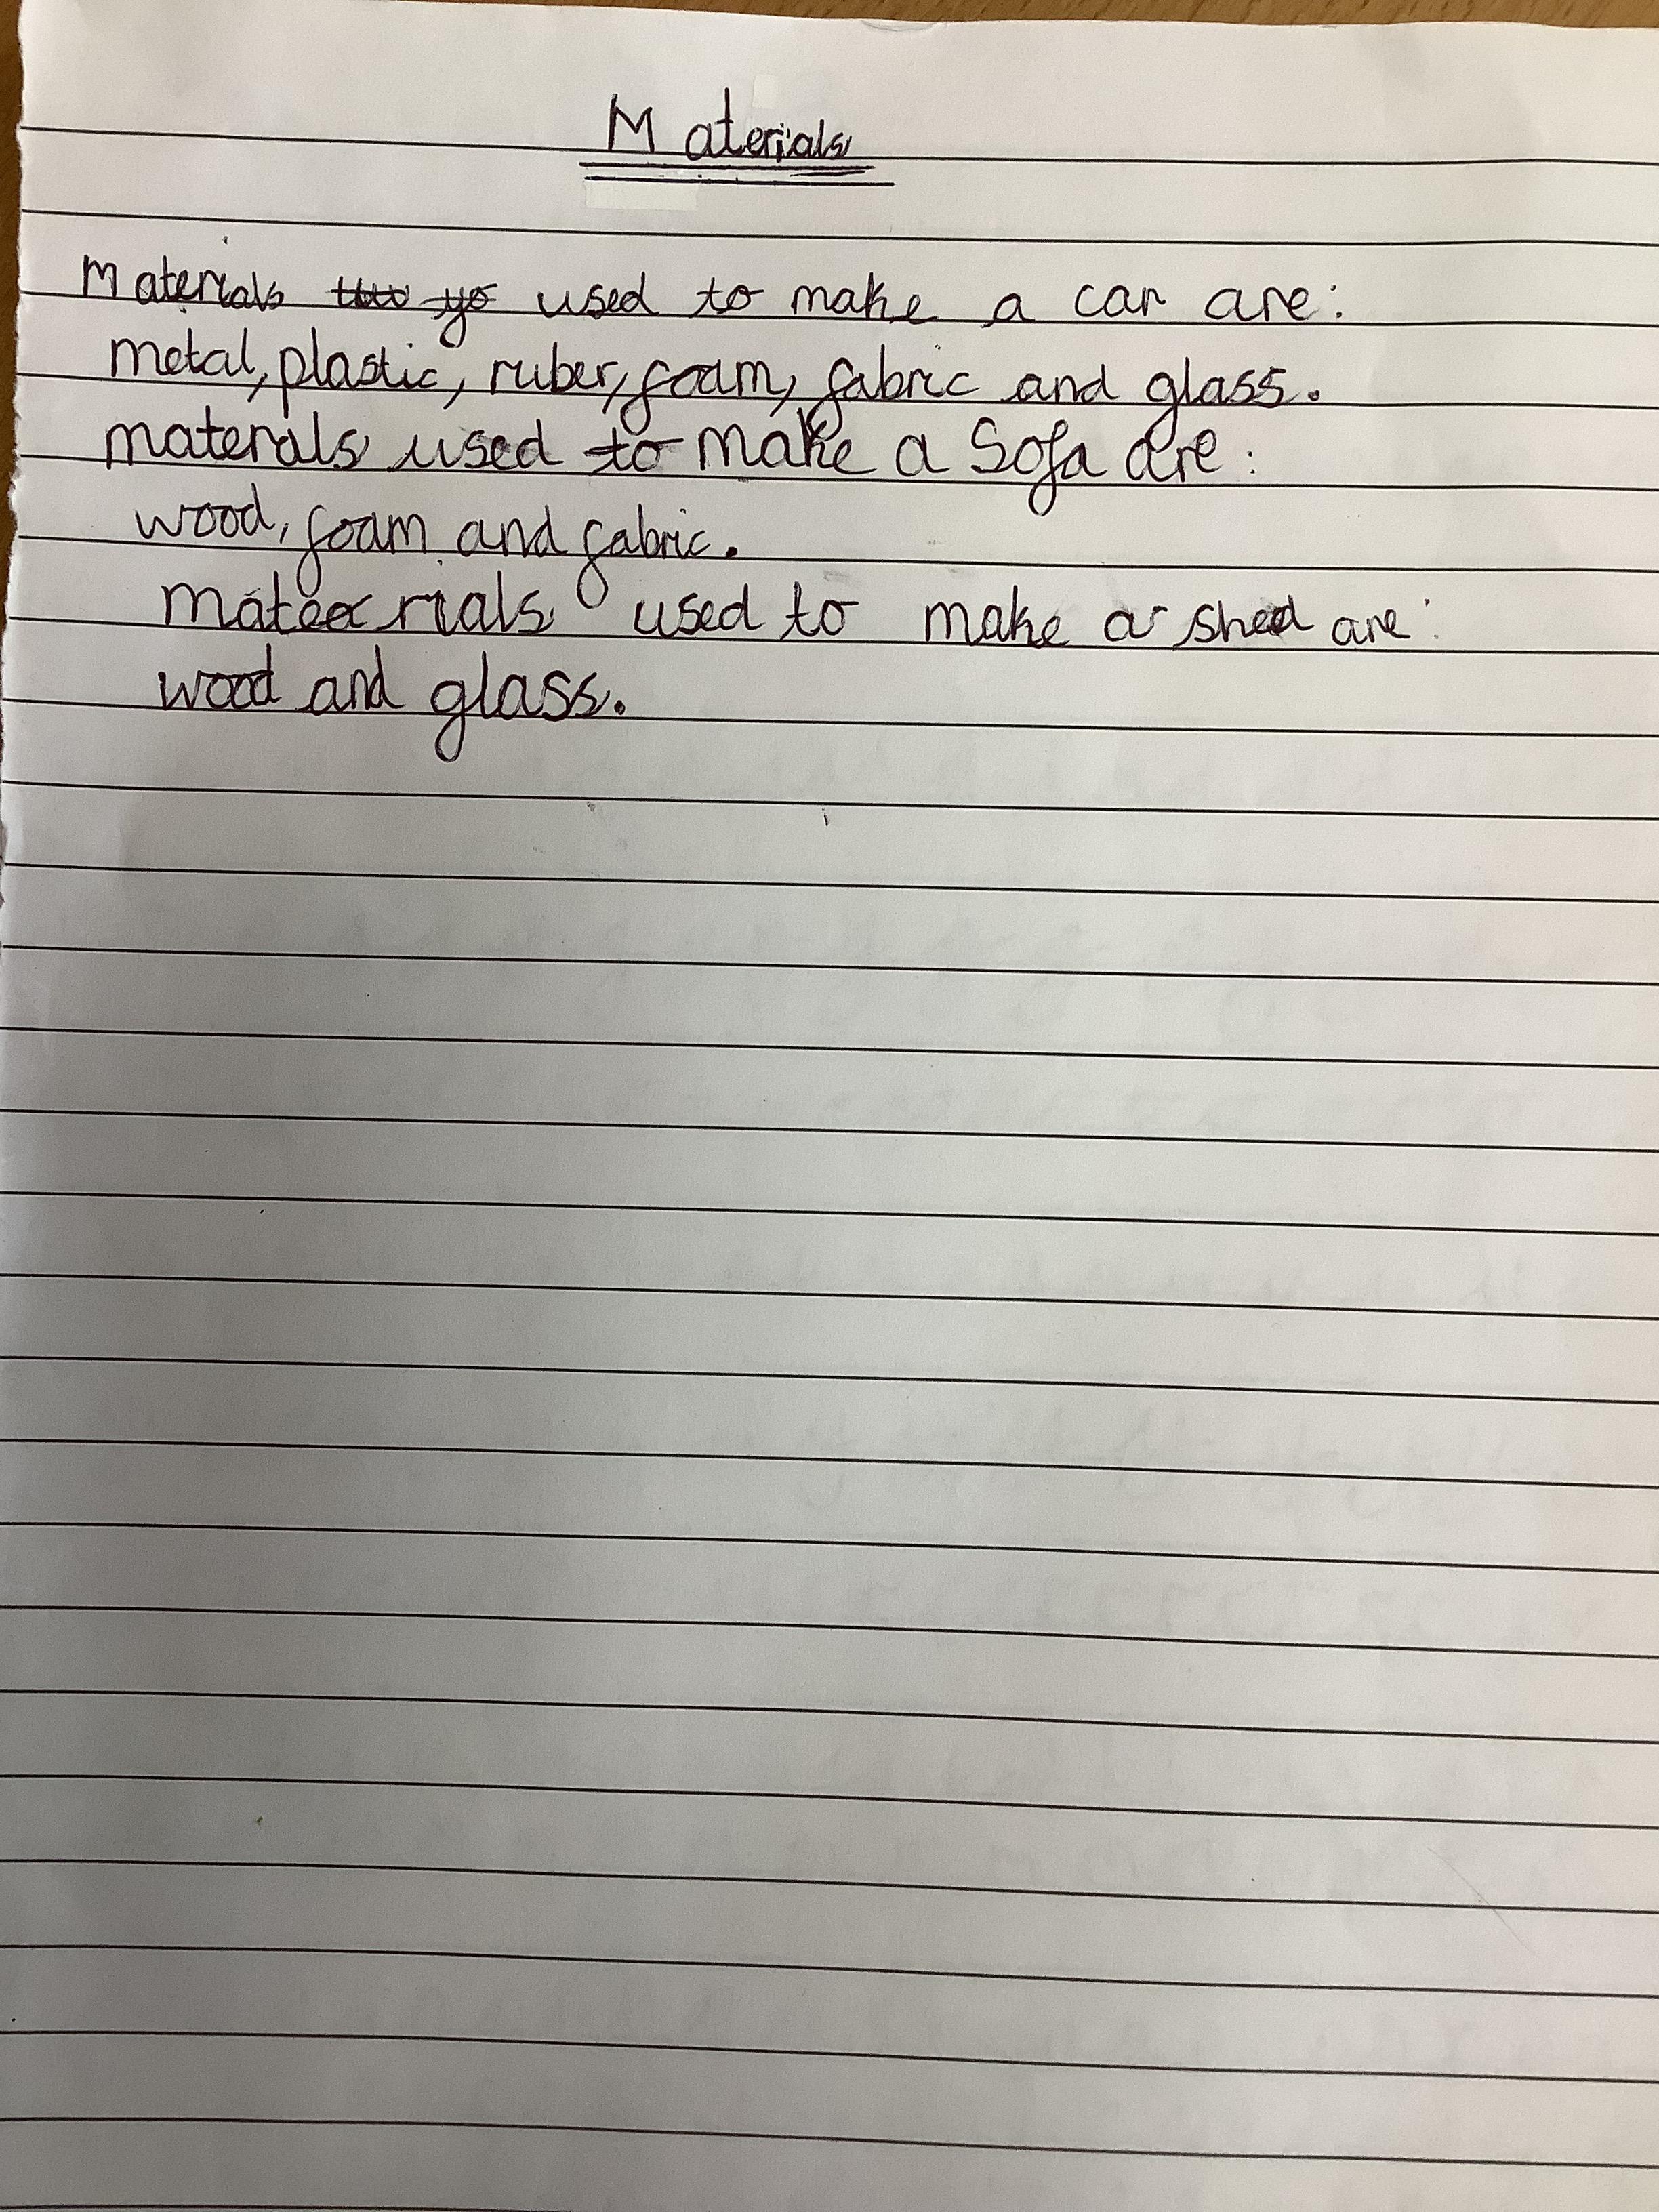 Materials
Materials used to make a car are:
metal, plastic, ruber, foam, fabric and glass.
materals used to make a Sofa are:
wood, foam and fabric.
materials used to make a shed are:
wood and glass.